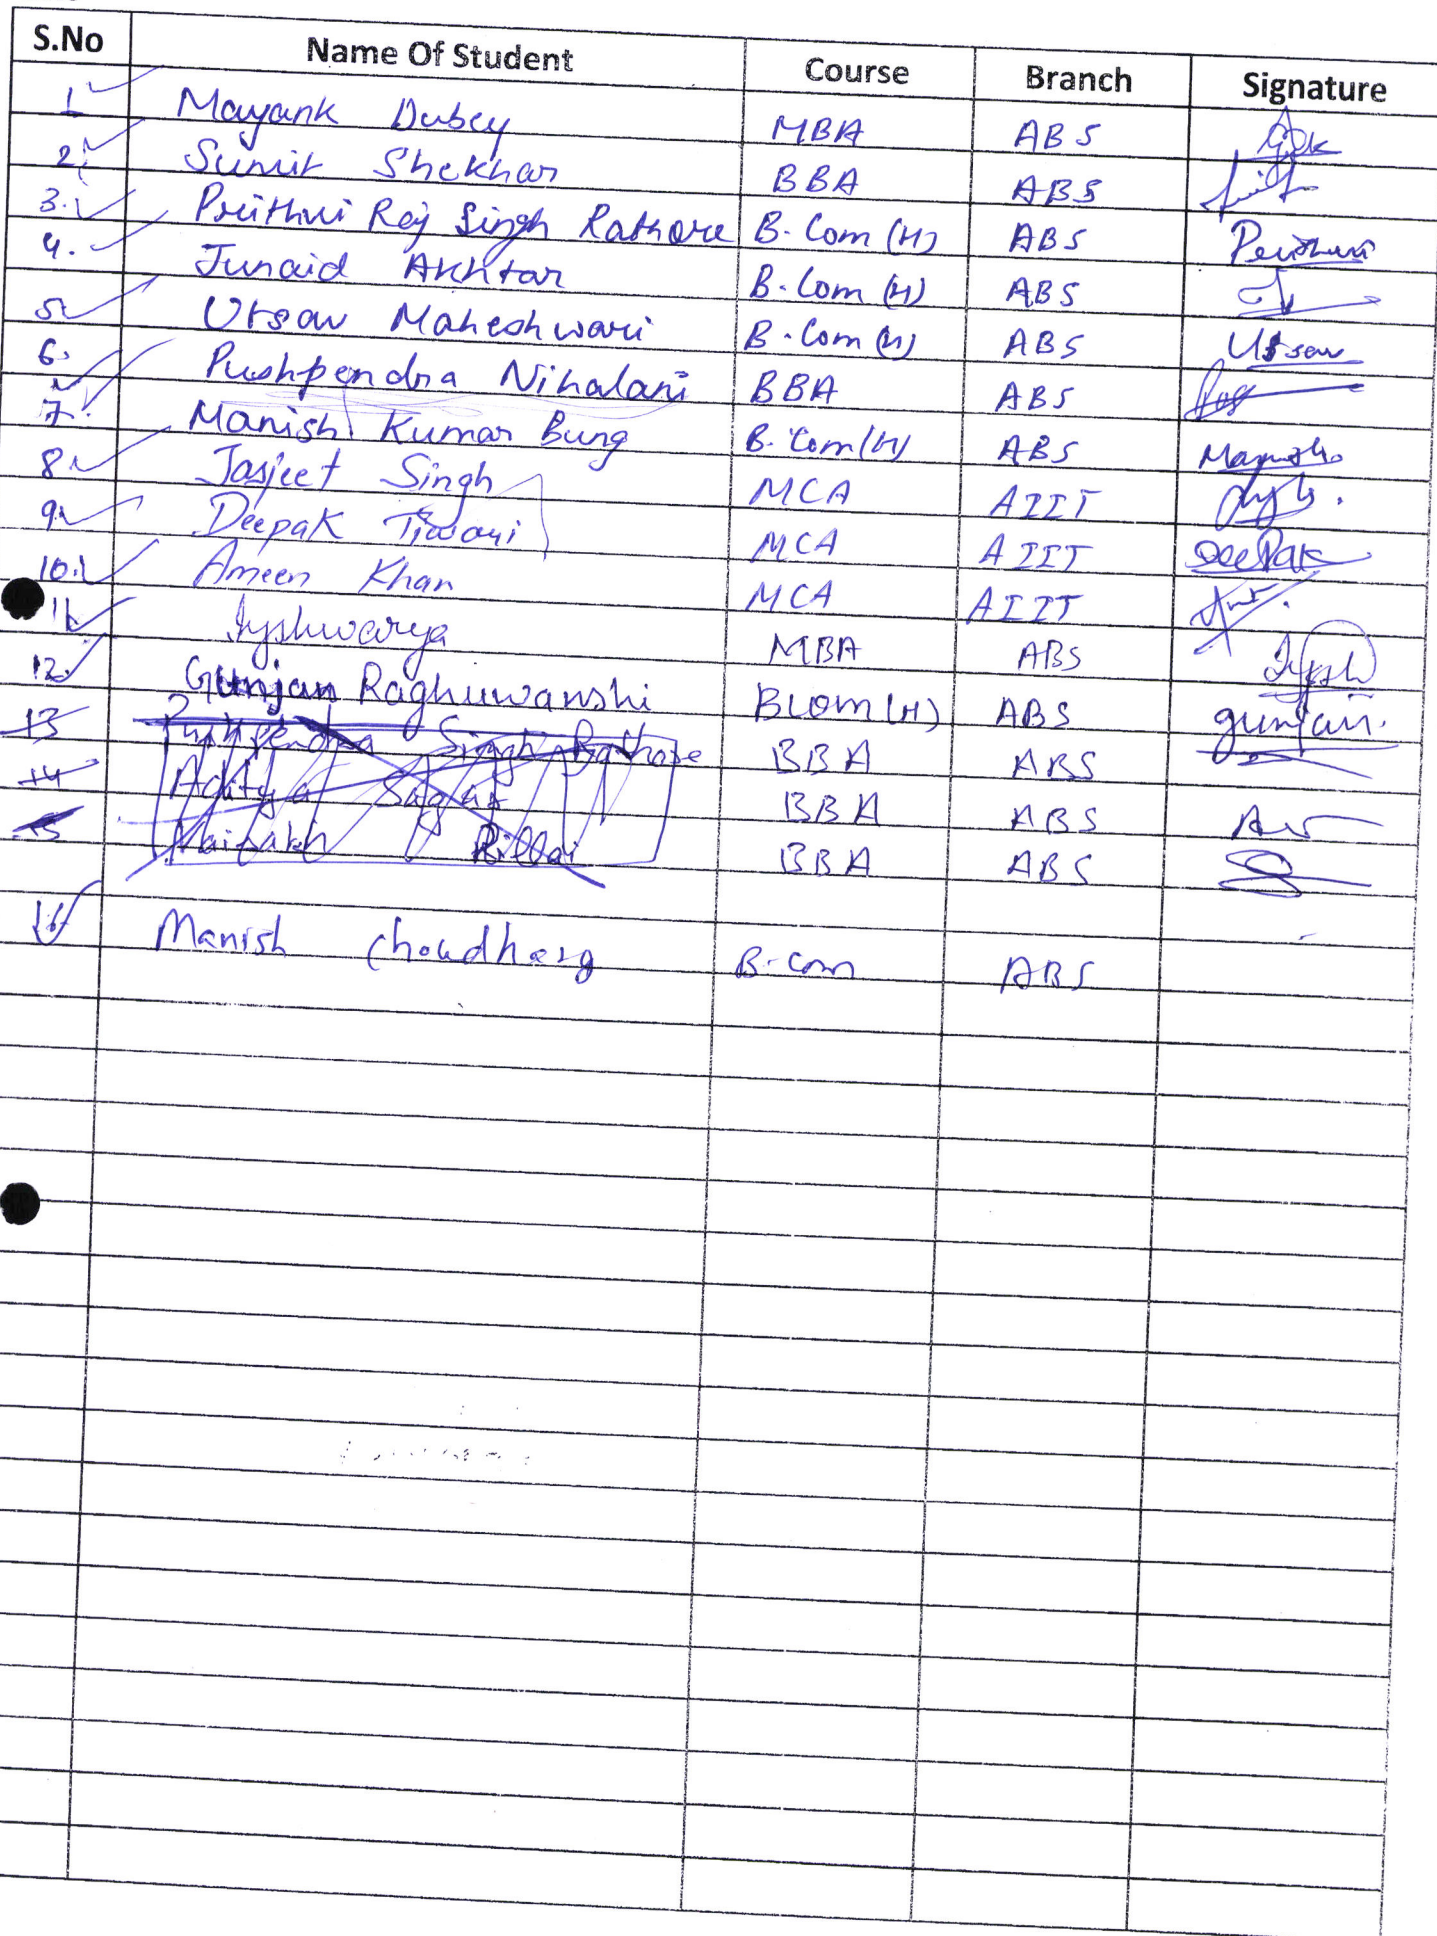 S.No Name Of Student Course Branch Signature
1 Mayank Dubey MBA ABS
2. Sumit Shekhar BBA ABS
3. Prithvi Raj Singh Rathore B.Com (H) ABS Prithvi
4. Junaid Akhtar B.Com (H) ABS
5. Utsav Maheshwari B.Com (H) ABS Utsav
6. Pushpendra Nihalani BBA ABS
7. Manish Kumar Bung B.Com (H) ABS Manish
8. Jasjeet Singh MCA AIIT
9. Deepak Tiwari MCA AIIT Deepak
10. Ameen Khan MCA AIIT
11. Iyshwarya MBA ABS Iysh
12. Gunjan Raghuwanshi BCom (H) ABS gunjan.
13 Pushpendra Singh Rathore BBA ABS
14 Aditya Sagar BBA ABS
15 Pillai BBA ABS
16 Manish Choudhary B.com ABS